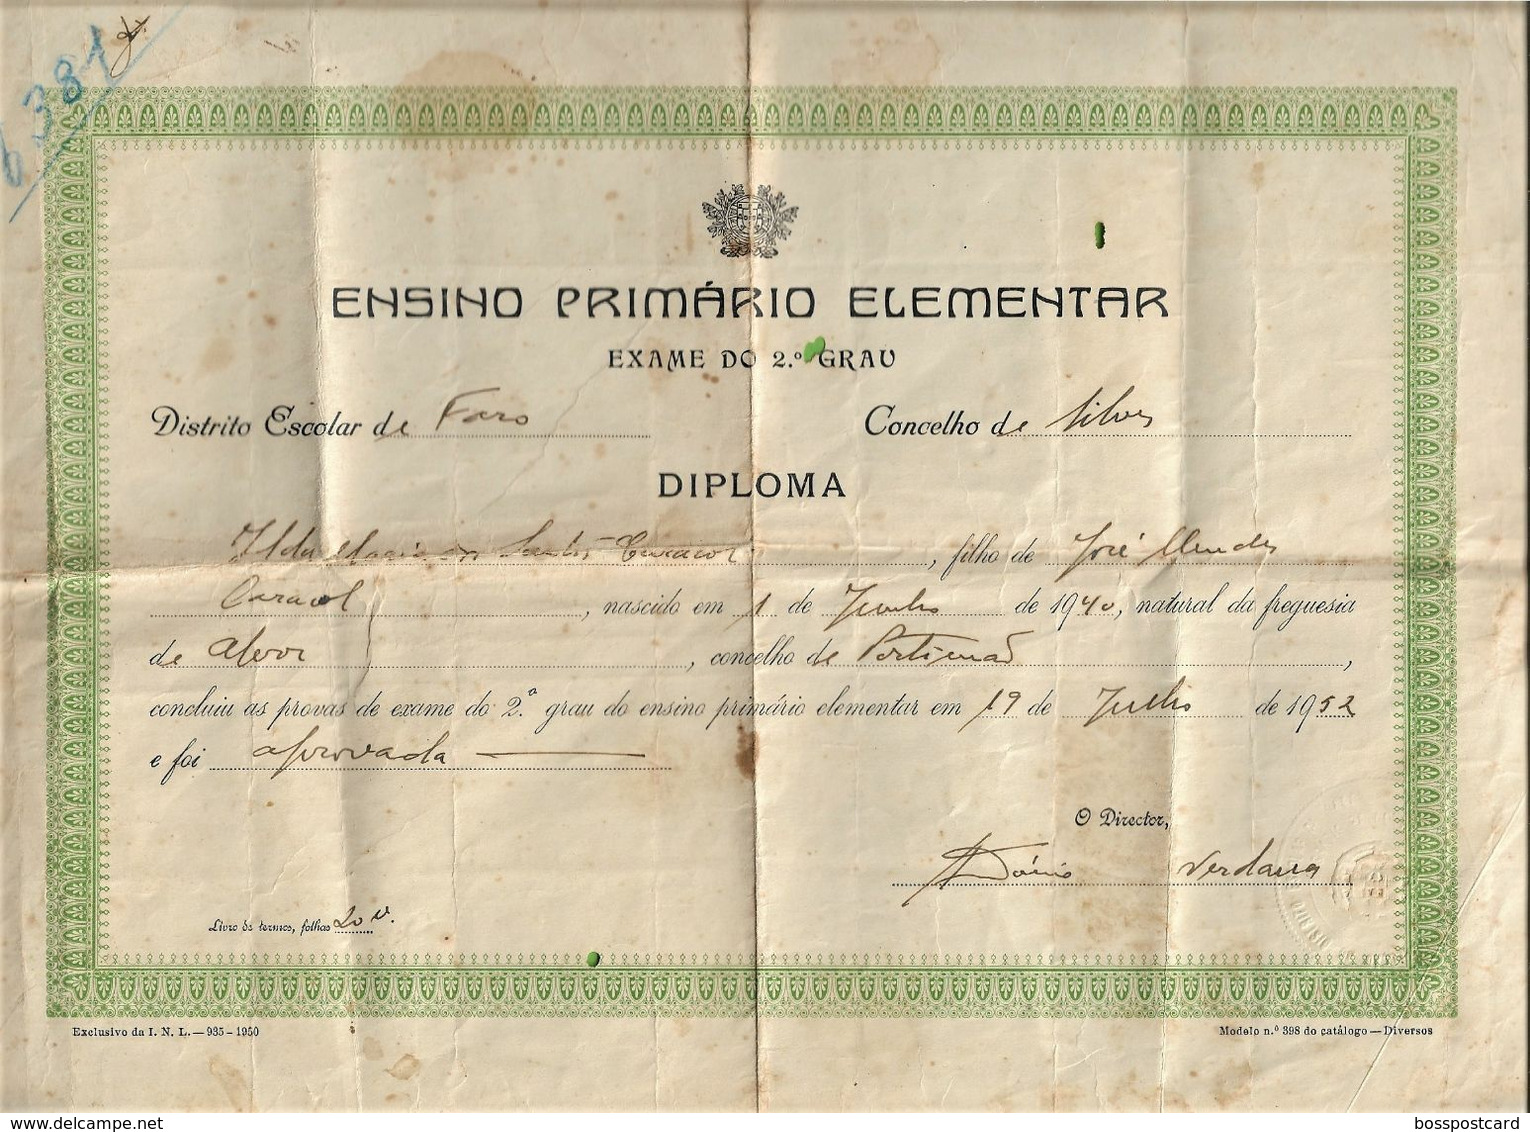 6381
ENSINO PRIMÁRIO ELEMENTAR
EXAME DO 2.º GRAU
Distrito Escolar de Faro Concelho de Silves
DIPLOMA
Ilda Maria dos Santos Caracol, filho de José Mendes
Caracol, nascido em 1 de Junho de 1940, natural da freguesia
de Alvor, concelho de Portimão,
concluiu as provas de exame do 2.º grau do ensino primário elementar em 19 de Julho de 1952
e foi aprovada
O Director,
Livro de termos, folhas 20 v.
Exclusivo da I. N. L. — 935 - 1950
Modelo n.º 398 do catálogo — Diversos
bosspostcard